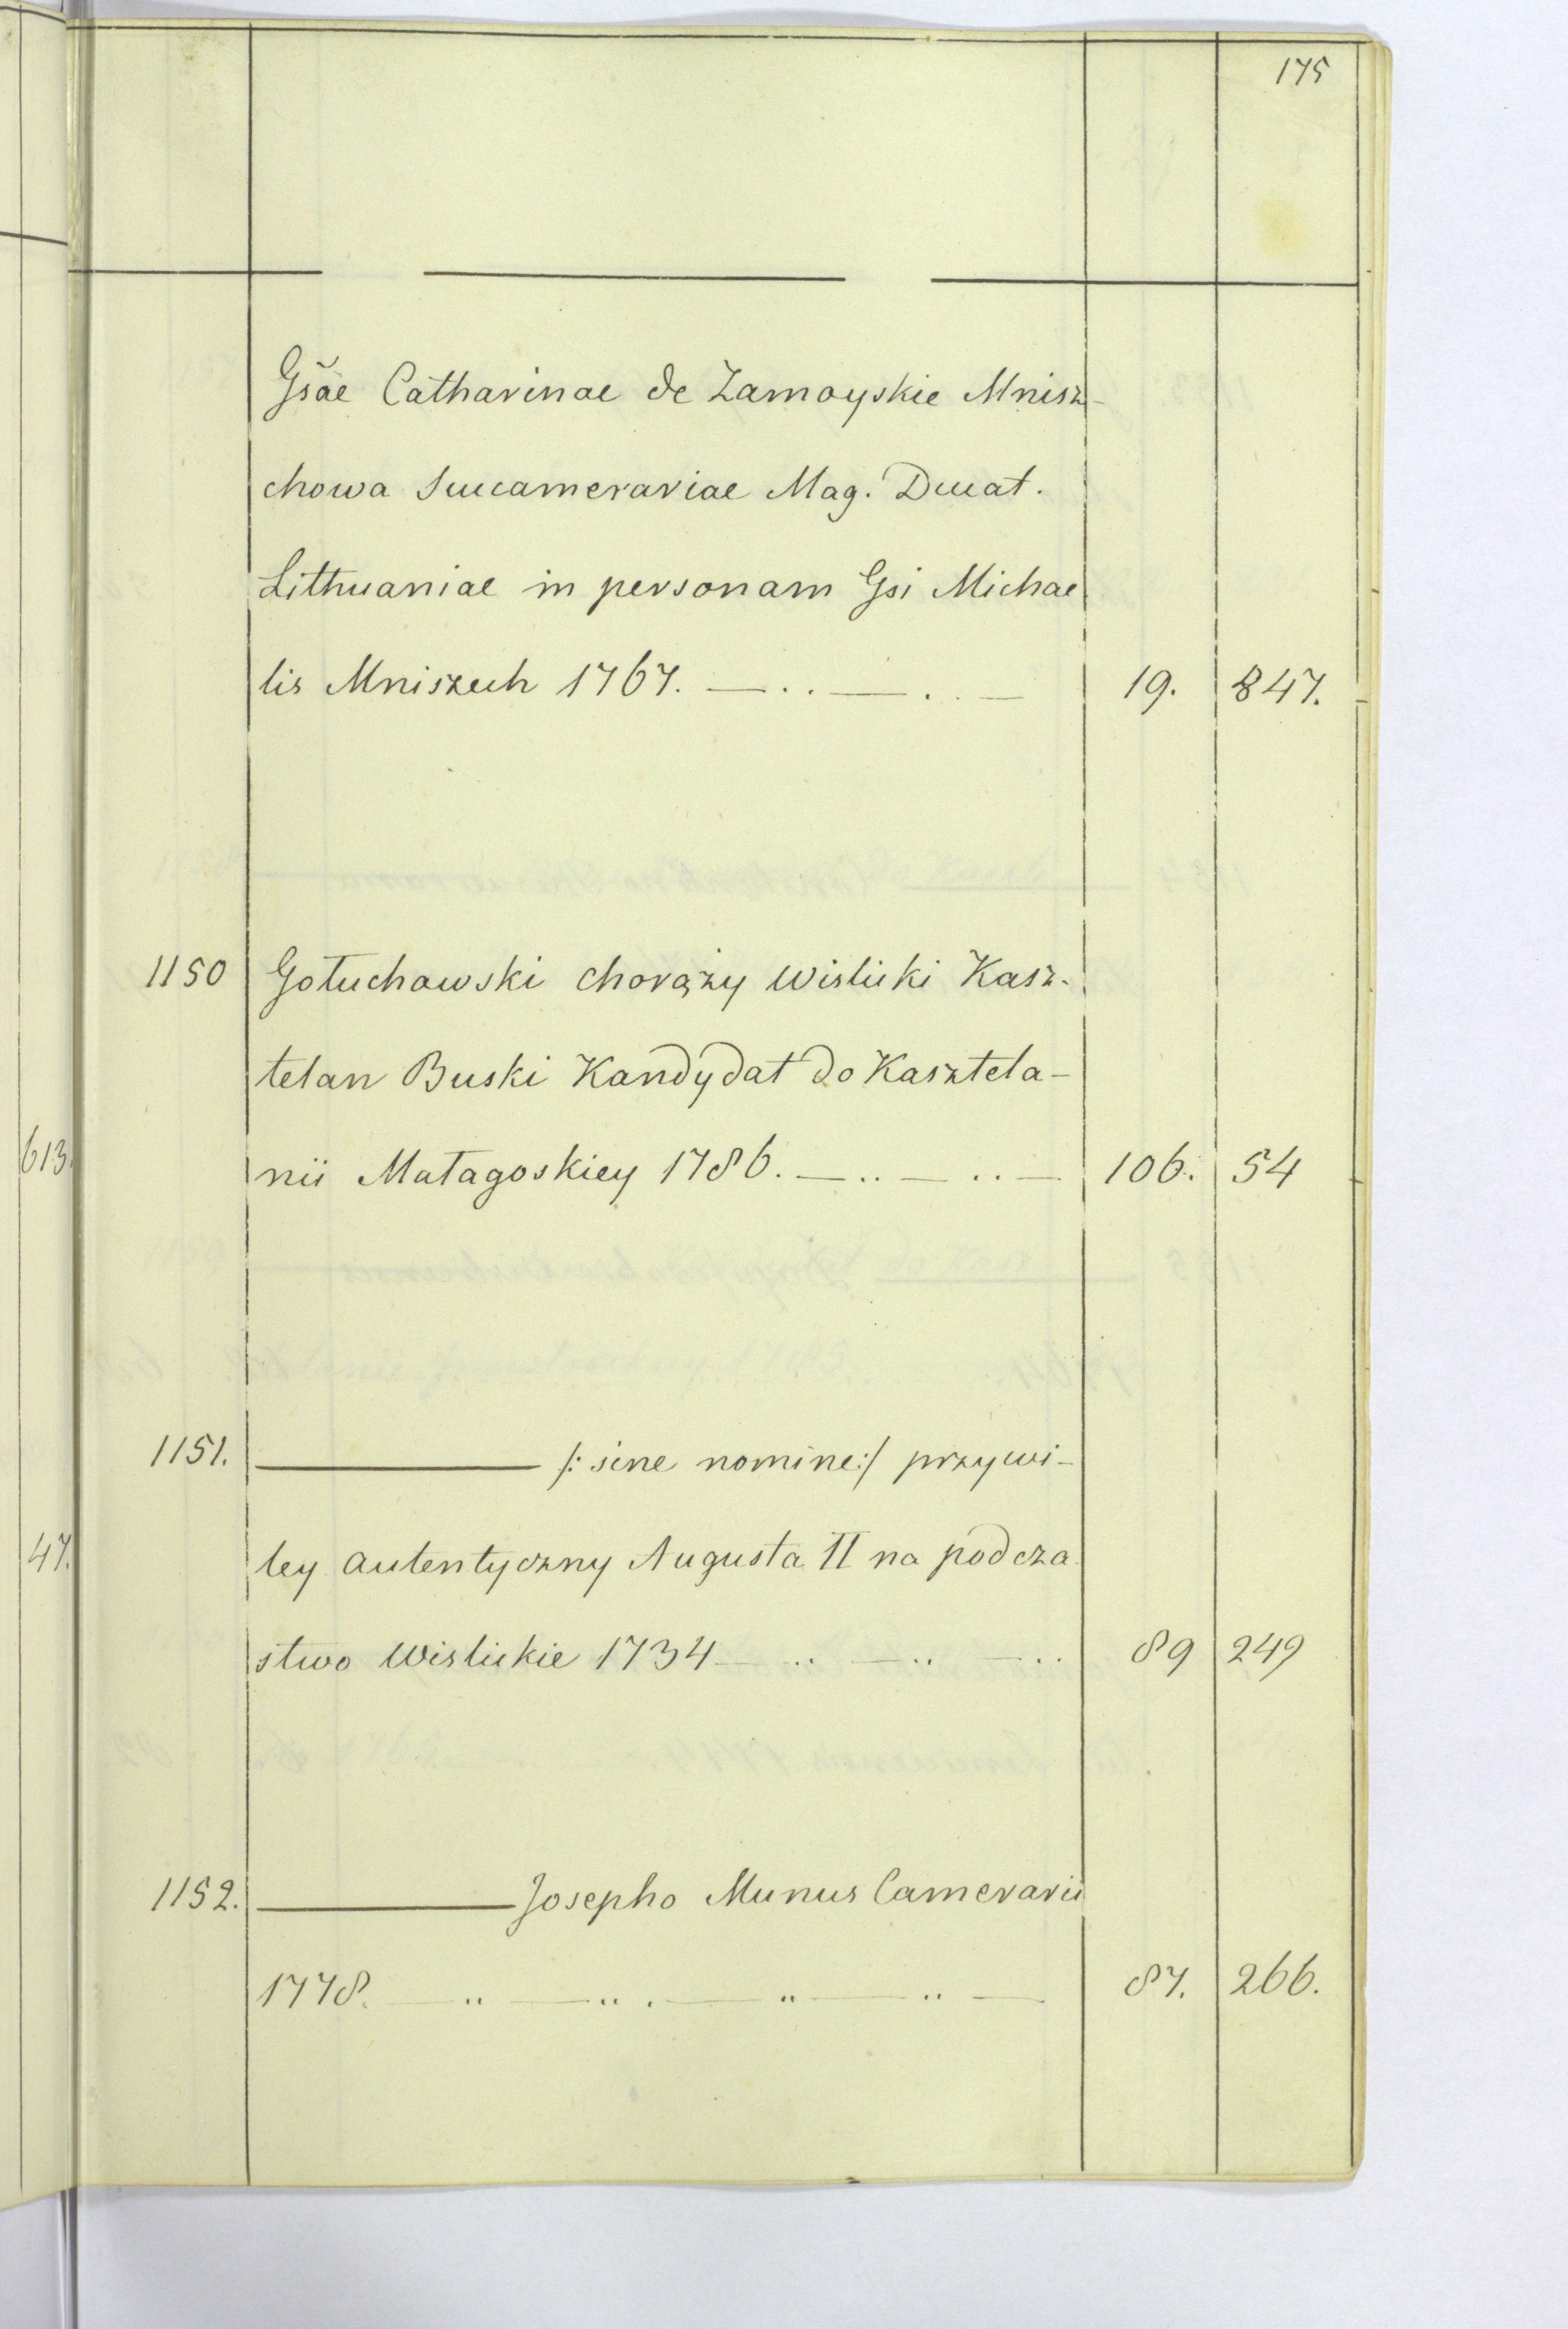 175
Gsae Catharinae de Zamoyskie Mnisz-
chowa Succamerariae Mag. Ducat.
Lithuaniae in personam Gsi Michae
lis Mniszech 1767. 19. 847.
1150 Gołuchowski chorąży Wislicki Kasz-
telan Buski Kandydat do Kasztela-
613. nii Małagoskiey 1786. 106. 54
1151. /: sine nomine:/ przywi-
47. ley autentyczny Augusta II na podcza
stwo Wislickie 1734 89 249
1152. Josepho Munus Camerarii
1778. 87. 266.